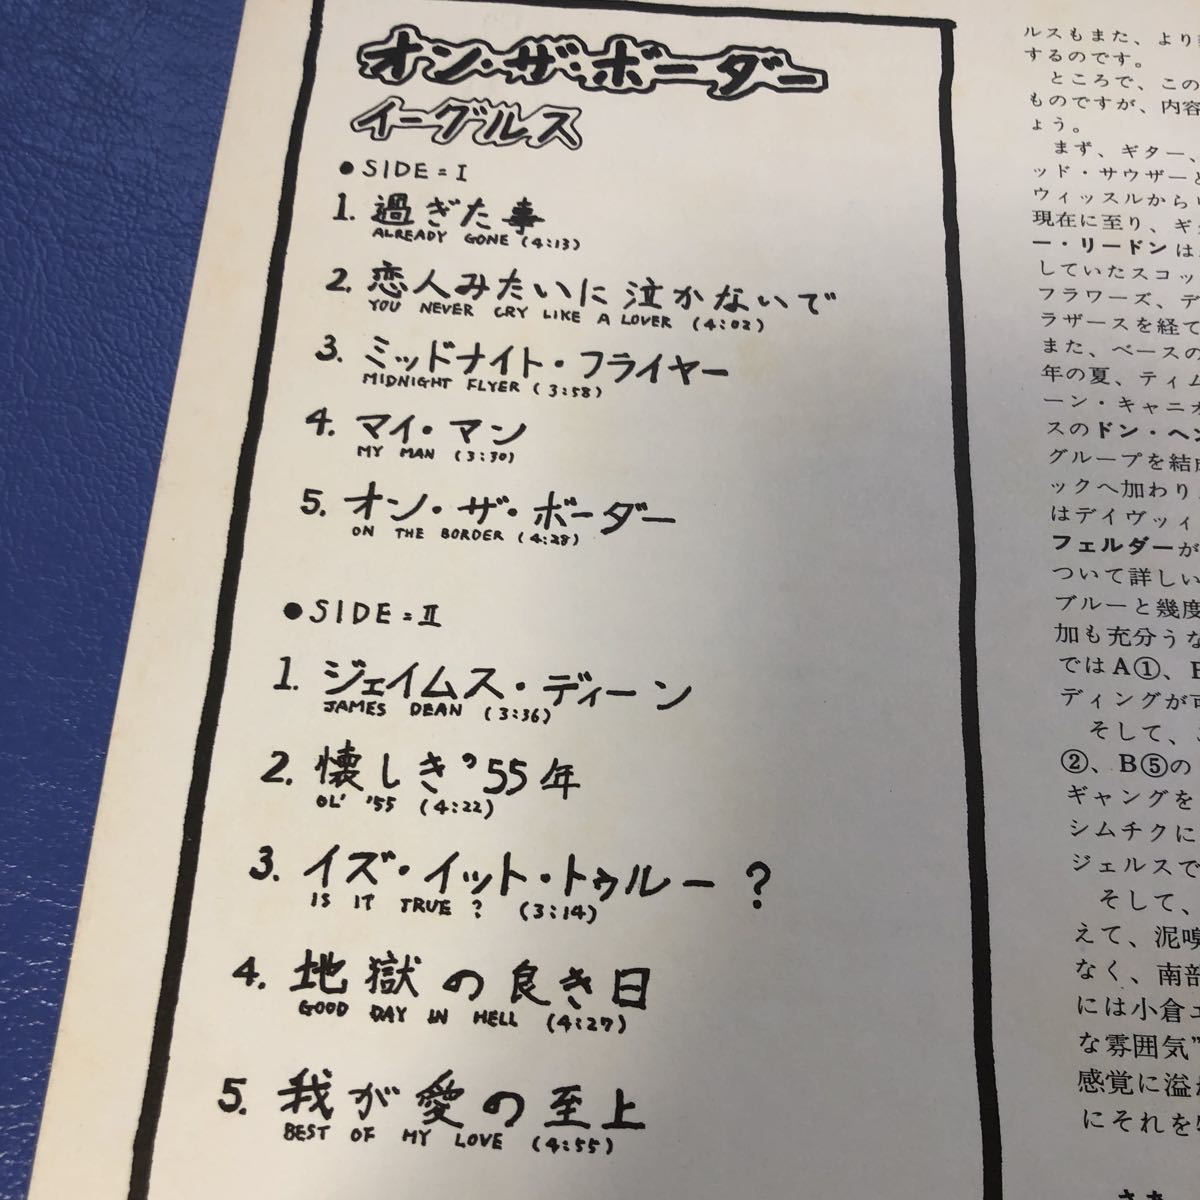 オン・ザ・ボーダー
イーグルス
●SIDE=I
1. 過ぎた事
ALREADY GONE (4:13)
2. 恋人みたいに泣かないで
YOU NEVER CRY LIKE A LOVER (4:02)
3. ミッドナイト・フライヤー
MIDNIGHT FLYER (3:58)
4. マイ・マン
MY MAN (3:30)
5. オン・ザ・ボーダー
ON THE BORDER (4:28)
●SIDE=II
1. ジェイムス・ディーン
JAMES DEAN (3:36)
2. 懐しき'55年
OL' '55 (4:22)
3. イズ・イット・トゥルー?
IS IT TRUE? (3:14)
4. 地獄の良き日
GOOD DAY IN HELL (4:27)
5. 我が愛の至上
BEST OF MY LOVE (4:55)
ルスもまた、より
するのです。
ところで、この
ものですが、内容
ょう。
まず、ギター、
ッド・サウザーと
ウィッスルから
現在に至り、ギ
ー・リードンは
していたスコッ
フラワーズ、デ
ラザースを経て
また、ベースの
年の夏、ティム
ーン・キャニオ
スのドン・ヘン
グループを結成
ックへ加わり
はデイヴィ
フェルダーが
ついて詳しい
ブルーと幾度
加も充分うな
ではA①、
ディングが可
そして、
②、B⑤の
ギャングを
シムチクに
ジェルスで
そして、
えて、泥嗅
なく、南部
には小倉エ
な雰囲気”
感覚に溢
にそれを
さあ